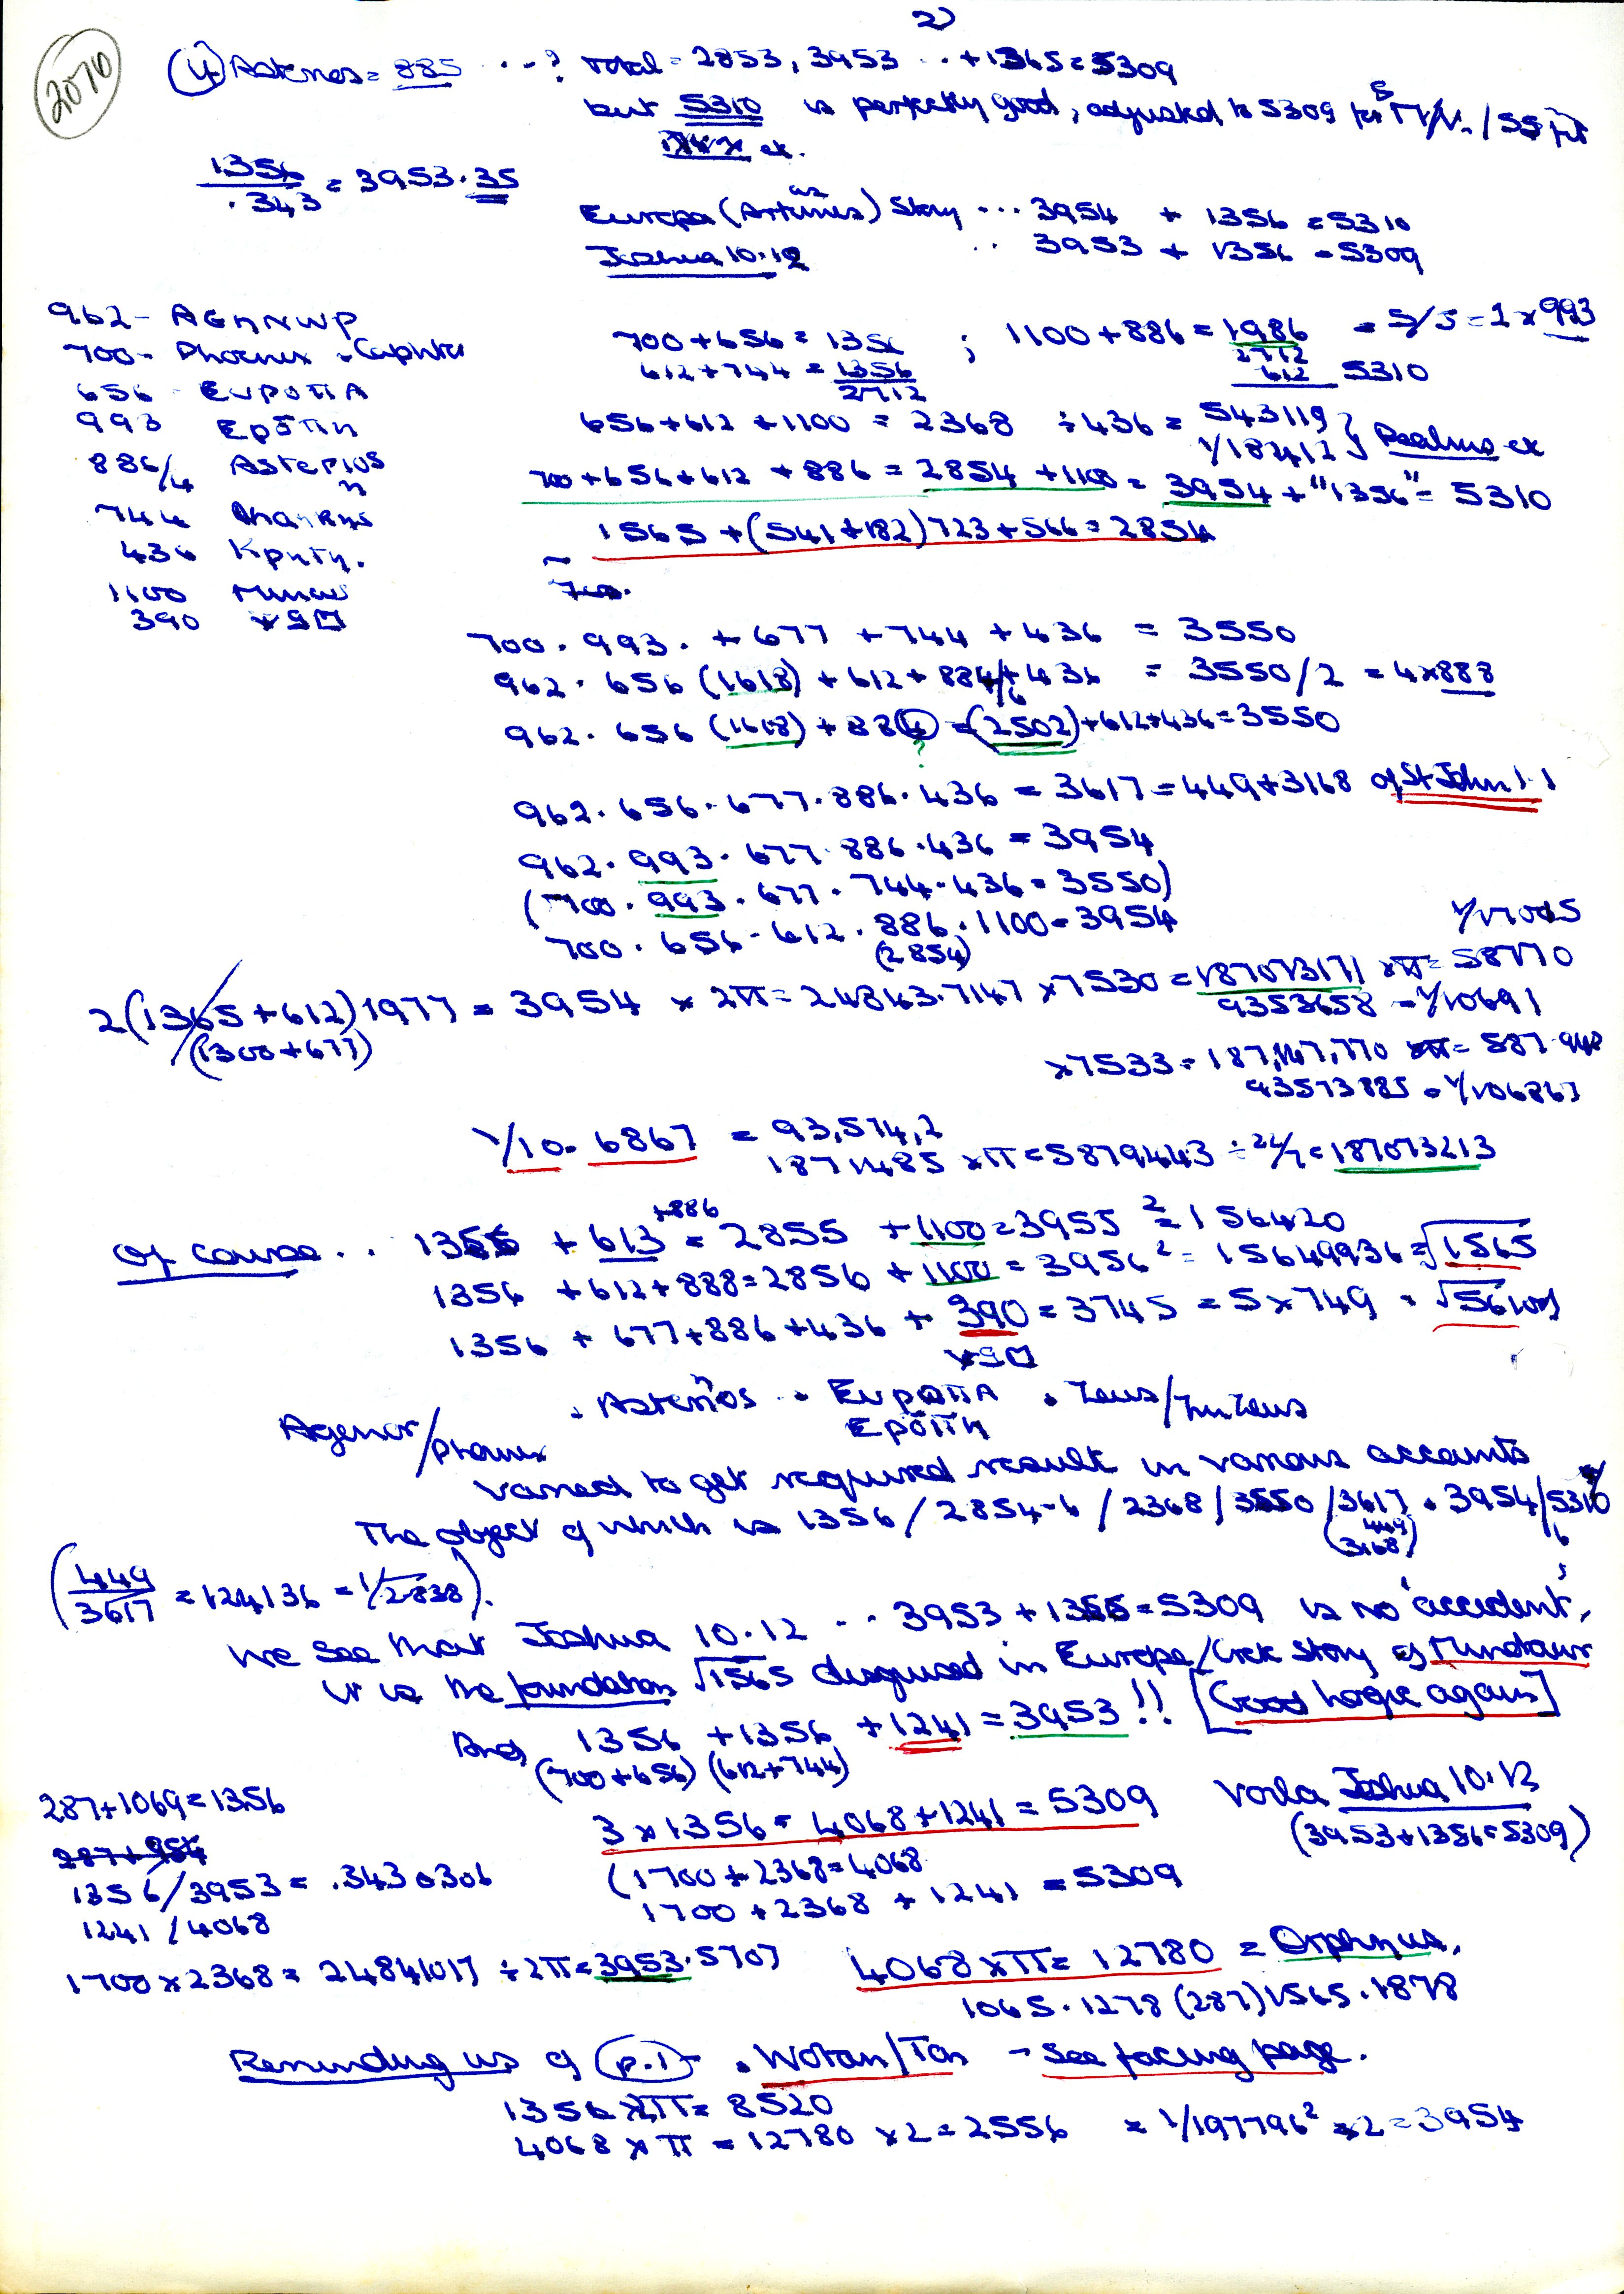 2)
2070
(4) Asterios = 885 ... ? total = 2853, 3953 .. + 1365 = 5309
but 5310 is perfectly good, adjusted to 5309 for
ex.
1356 / .343 = 3953.35
Europa (Artemis) Story ... 3954 + 1356 = 5310
Joshua 10.12 .. 3953 + 1356 = 5309
962 - AGηNWP
700 - Phoenix
656 - EυροπΑ
993 Eρōπη
886/4 Asterios
744
436 Κρητη.
1100 Minos
390
700 + 656 = 1356 ; 1100 + 886 = 1986 = 5/5 = 1 x 993
612 + 744 = 1356 2712
2712 612 5310
656 + 612 + 1100 = 2368 ÷ 436 = 543119 } Psalms ex
1/18412
700 + 656 + 612 + 886 = 2854 + 1100 = 3954 + "1356" = 5310
1565 + (541 + 182) 723 + 566 = 2854
700 . 993 . + 677 + 744 + 436 = 3550
962 . 656 (1618) + 612 + 884/6 + 436 = 3550/2 = 4 x 888
962 . 656 (1618) + 884 = (2502) + 612 + 436 = 3550
?
962 . 656 . 677 . 886 . 436 = 3617 = 449 + 3168 of St John 1.1
962 . 993 . 677 . 886 . 436 = 3954
(700 . 993 . 677 . 744 . 436 = 3550)
700 . 656 . 612 . 886 . 1100 = 3954
(2854)
2 (1365 + 612) 1977 = 3954 x 2π = 24843.7147 x 7530 = 187073171 x π = 58770
(1300 + 677)
9353658 = 1/10691
x 7533 = 187,147,770 x π = 587.948
93573885 = 1/106867
1/10.6867 = 93,574,2
1871485 x π = 5879443 ÷ 22/7 = 187073213
Of course .. 1356 + 613 + 886 = 2855 + 1100 = 3955 ² = 156420
1356 + 612 + 888 = 2856 + 1100 = 3956 ² = 15649936 = √1565
1356 + 677 + 886 + 436 + 390 = 3745 = 5 x 749 .
Agenor/Phoenix . Asterios . EυροπΑ . Zeus/
Eρōπη
varied to get required result in various accounts
The object of which is 1356 / 2854-6 / 2368 / 3550 / 3617 . 3954 / 5310
(449 3168)
(449/3617 = 124136 = 1/√2838).
We see that Joshua 10.12 .. 3953 + 1356 = 5309 is no 'accident',
it is the foundation √1565 disguised in Europe/Crete story of Minotaur
And 1356 + 1356 + 1241 = 3953 !! [Good logic again]
(700 + 656) (612 + 744)
287 + 1069 = 1356
3 x 1356 = 4068 + 1241 = 5309 Voila Joshua 10.12
(3953 + 1356 = 5309)
1356 / 3953 = .3430306
(1700 + 2368 = 4068
1241 / 4068
1700 + 2368 + 1241 = 5309
1700 x 2368 = 24841017 ÷ 2π = 3953.5707
4068 x π = 12780 = Orpheus,
1065 . 1278 (287) 1565 . 1878
Reminding us of (p.1) - . Wotan/Tan - see facing page.
1356 x 2π = 8520
4068 x π = 12780 x 2 = 2556 = 1/197796² x 2 = 3954